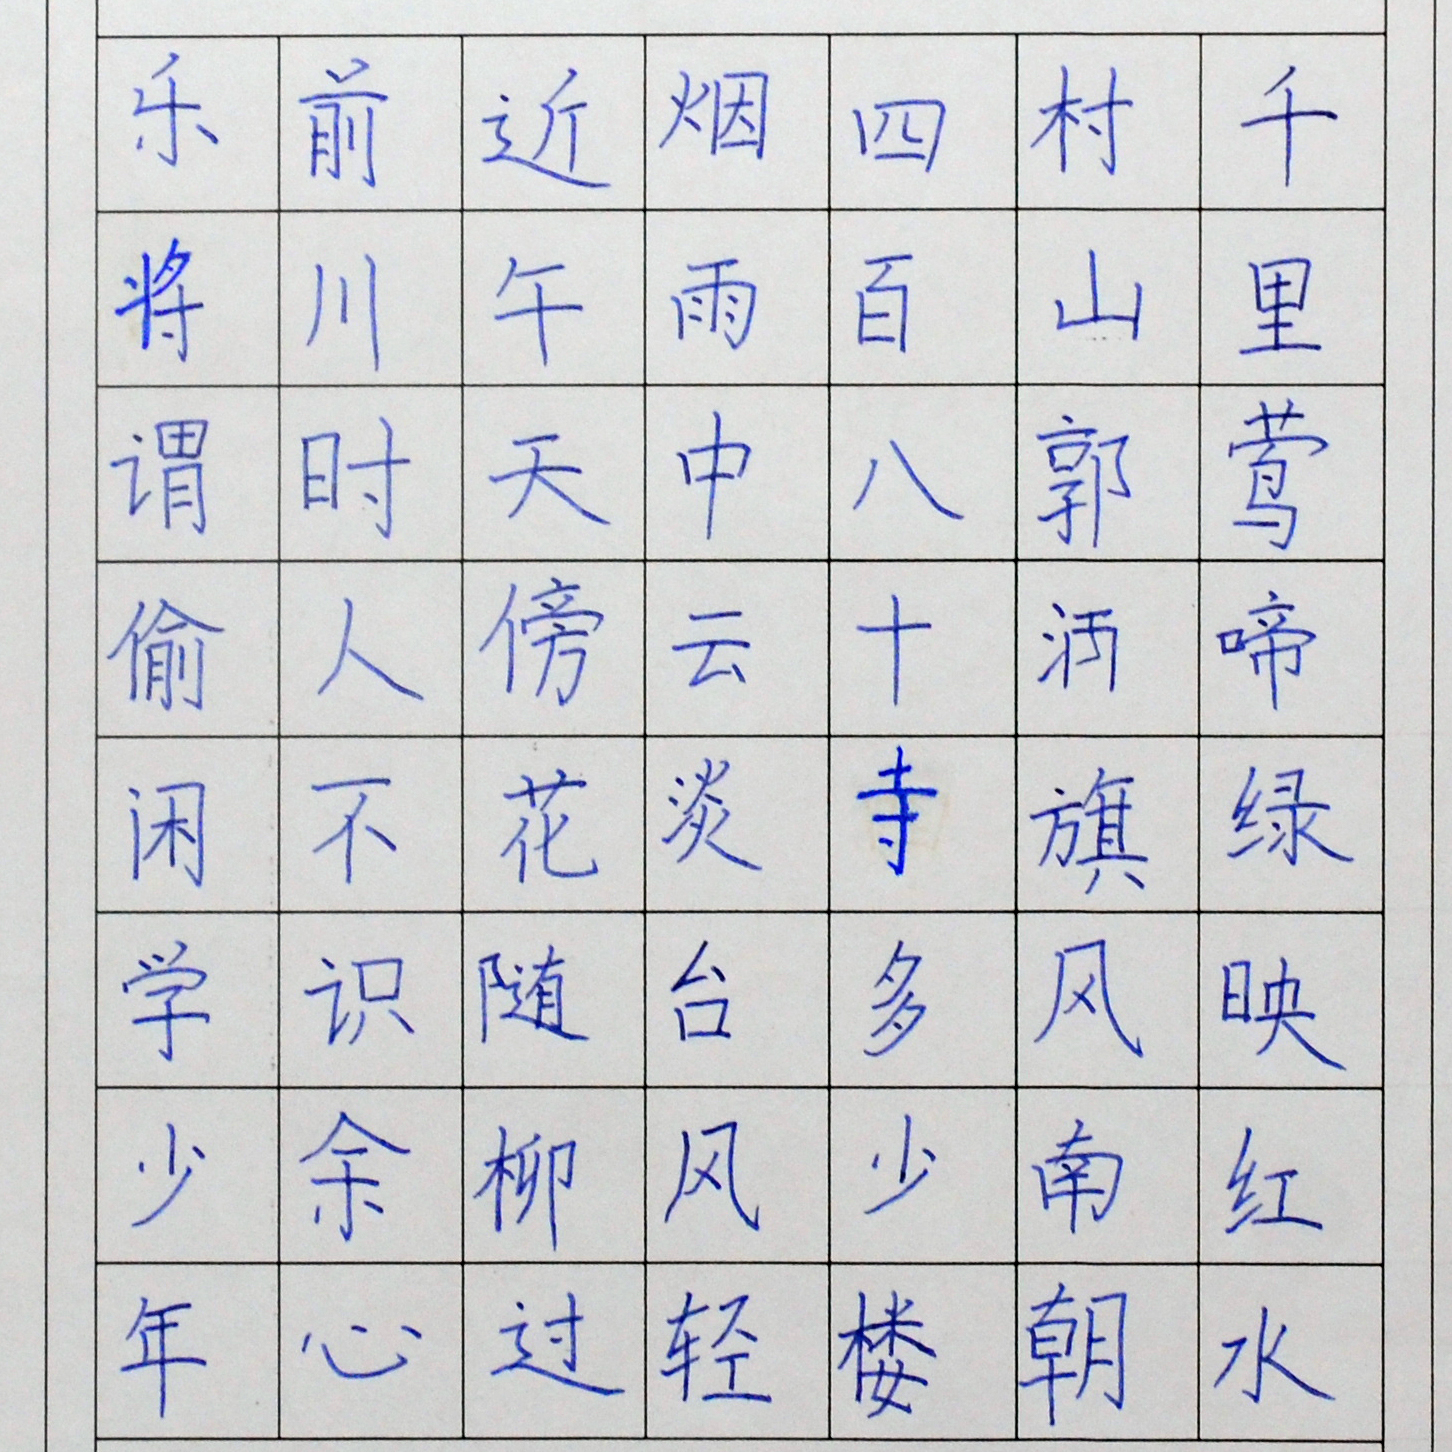 千里莺啼绿映红水
村山郭酒旗风南朝
四百八十寺多少楼
烟雨中云淡台风轻
近午天傍花随柳过
前川时人不识余心
乐将谓偷闲学少年